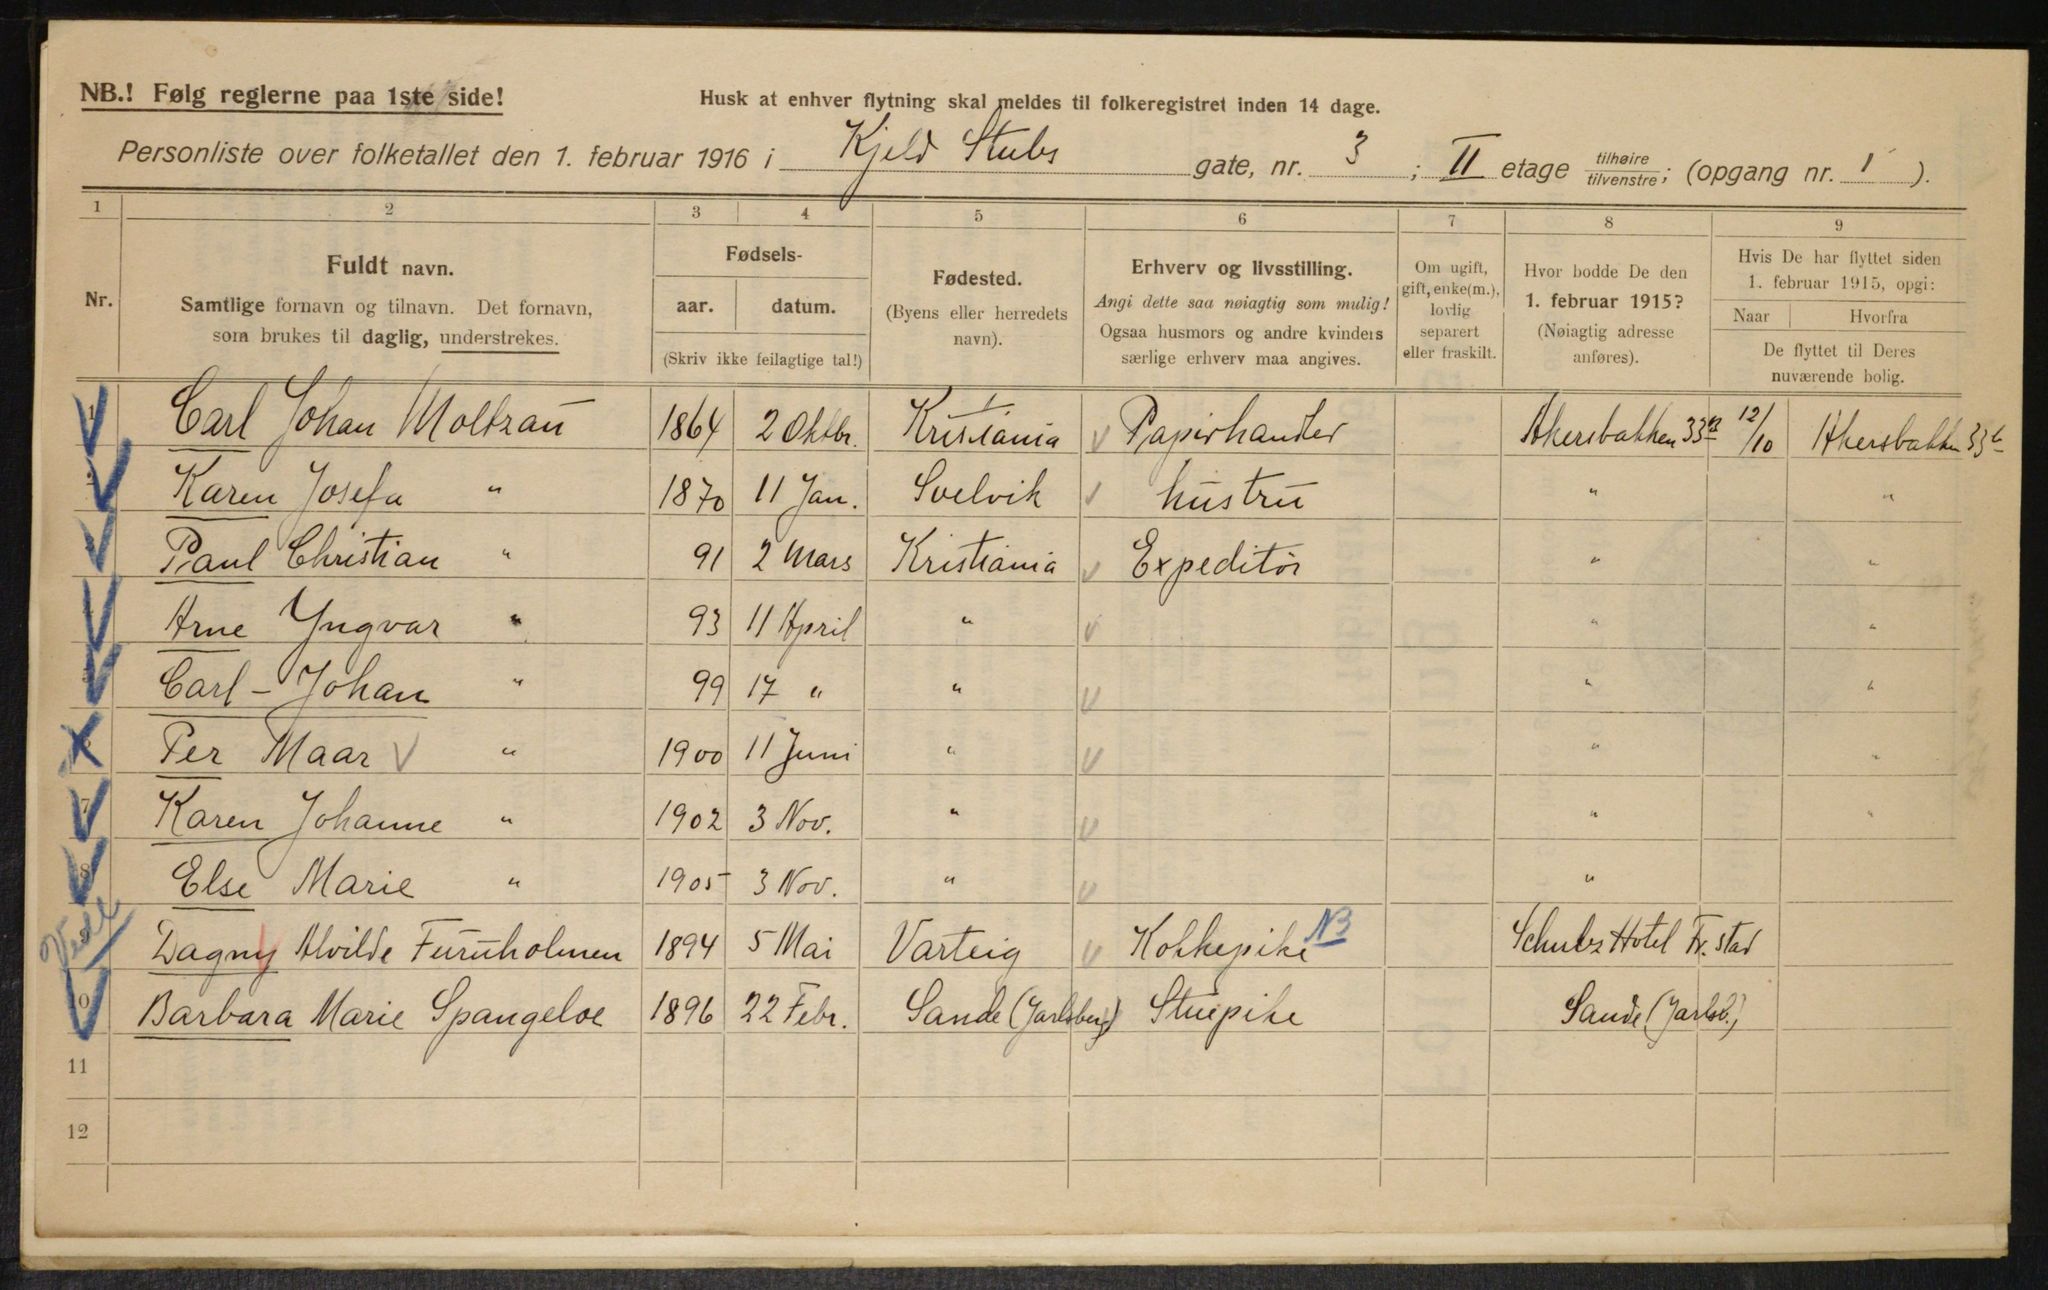 NB.! Følg reglerne paa 1ste side!
Husk at enhver flytning skal meldes til folkeregistret inden 14 dage.
Personliste over folketallet den 1. februar 1916 i Kjeld Stubs gate, nr. 3 ; II etage tilhøire tilvenstre ; (opgang nr. 1 ).
1 2 3 4 5 6 7 8 9
Nr.
Fuldt navn.
Samtlige fornavn og tilnavn. Det fornavn,
som brukes til daglig, understrekes.
Fødsels-
aar. datum.
(Skriv ikke feilagtige tal!)
Fødested.
(Byens eller herredets
navn).
Erhverv og livsstilling.
Angi dette saa nøiagtig som mulig!
Ogsaa husmors og andre kvinders
særlige erhverv maa angives.
Om ugift,
gift, enke(m.),
lovlig
separert
eller fraskilt.
Hvor bodde De den
1. februar 1915?
(Nøiagtig adresse
anføres).
Hvis De har flyttet siden
1. februar 1915, opgi:
Naar Hvorfra
De flyttet til Deres
nuværende bolig.
1 Carl Johan Moltzau 1864 2 Oktbr. Kristiania Papirhandler Akersbakken 33 12/10 Akersbakken 33
2 Karen Josefa " 1870 11 Jan. Svelvik hustru " "
3 Paul Christian " 91 2 Mars Kristiania Expeditør " "
4 Arne Yngvar " 93 11 April " " "
5 Carl-Johan " 99 17 " " " "
6 Per Maar " 1900 11 Juni " " "
7 Karen Johanne " 1902 3 Nov. " " "
8 Else Marie " 1905 3 Nov. " "
9 Dagny Alvilde Furuholmen 1894 5 Mai Varteig Kokkepike NB Schulz Hotel Fr. stad
10 Barbara Marie Spangeloe 1896 22 Febr. Sande (Jarlsberg) Stuepike Sande (Jarlsb.)
11
12